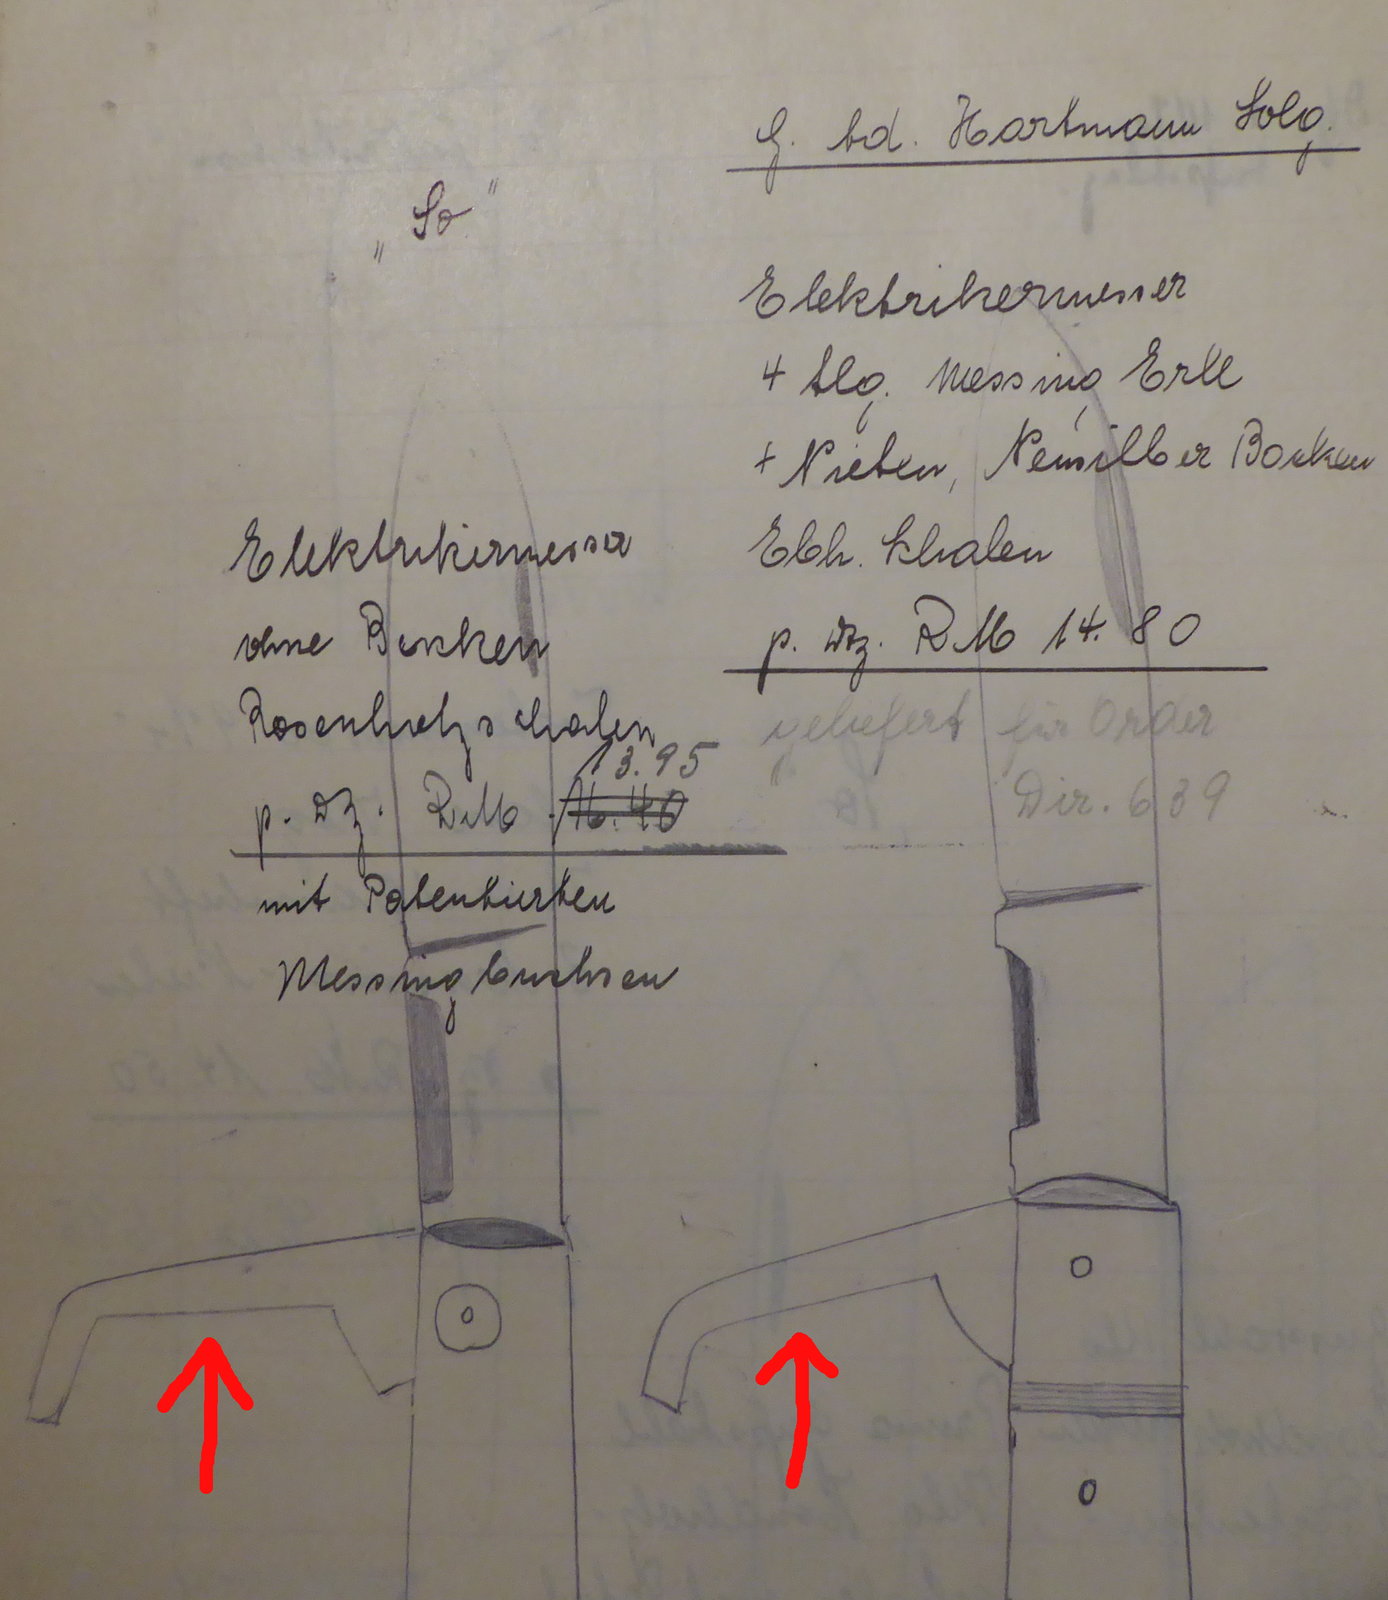 „So"
Elektrikermesser
ohne Backen
Rosenholzschalen
13.95
p. Dz. RM 16.40
mit Patentierten
Messingbuchsen
Hartmann Solg.
Elektrikermesser
4 tlg. Messing Erle
+ Nieten, Neusilber Backen
Ebh. Schalen
p. Dtz. RM 14.80
geliefert für Order
Dir. 639